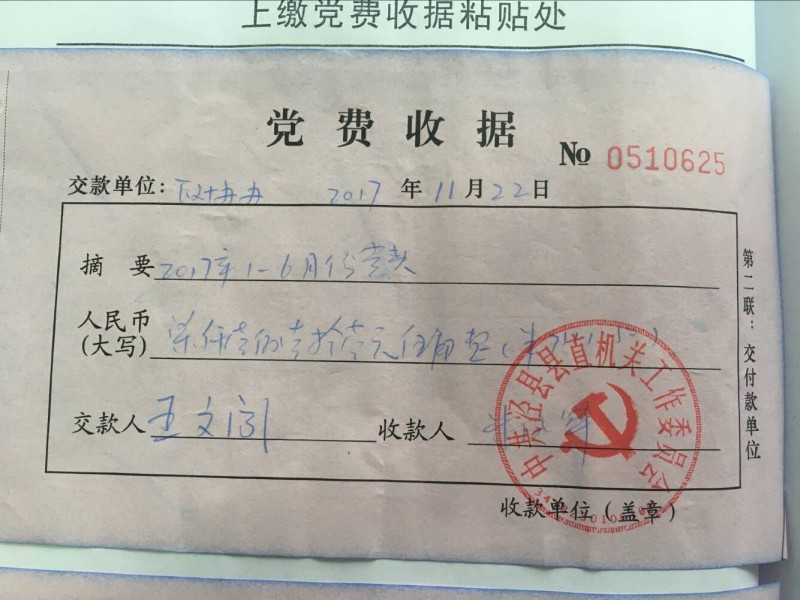 上缴党费收据粘贴处
党费收据
№ 0510625
交款单位: 政协办 2017年11月22日
摘要 2017年1-6月份党费
人民币
(大写) 柒仟壹佰壹拾壹元伍角整
交款人 王文
收款人
中共泾县县直机关工作委员会
收款单位(盖章)
第二联:交付款单位